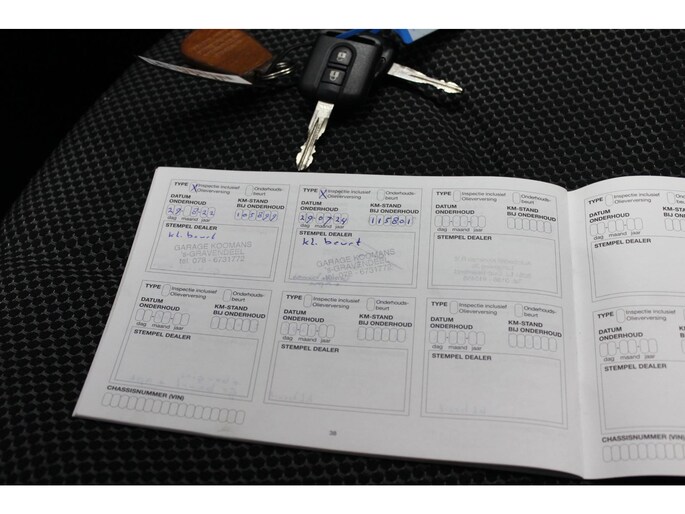 TYPE X Inspectie inclusief Olieverversing Onderhouds-beurt
DATUM ONDERHOUD KM-STAND BIJ ONDERHOUD
dag maand jaar
STEMPEL DEALER
kl. beurt
GARAGE KOOMANS
'S-GRAVENDEEL
tel: 078 - 6731772
TYPE X Inspectie inclusief Olieverversing Onderhouds-beurt
DATUM ONDERHOUD KM-STAND BIJ ONDERHOUD
29 07 24 115801
dag maand jaar
STEMPEL DEALER
kl. beurt
GARAGE KOOMANS
'S-GRAVENDEEL
078 - 6731772
TYPE Inspectie inclusief Olieverversing Onderhouds-beurt
DATUM ONDERHOUD KM-STAND BIJ ONDERHOUD
dag maand jaar
STEMPEL DEALER
TYPE Inspectie inclusief Olieverversing
DATUM ONDERHOUD
dag maand jaar
STEMPEL DEALER
TYPE Inspectie inclusief Olieverversing Onderhouds-beurt
DATUM ONDERHOUD KM-STAND BIJ ONDERHOUD
dag maand jaar
STEMPEL DEALER
TYPE Inspectie inclusief Olieverversing Onderhouds-beurt
DATUM ONDERHOUD KM-STAND BIJ ONDERHOUD
dag maand jaar
STEMPEL DEALER
TYPE Inspectie inclusief Olieverversing Onderhouds-beurt
DATUM ONDERHOUD KM-STAND BIJ ONDERHOUD
dag maand jaar
STEMPEL DEALER
TYPE Inspectie inclusief Olieverversing
DATUM ONDERHOUD
dag maand jaar
STEMPEL DEALER
CHASSISNUMMER (VIN)
38
CHASSISNUMMER (VIN)